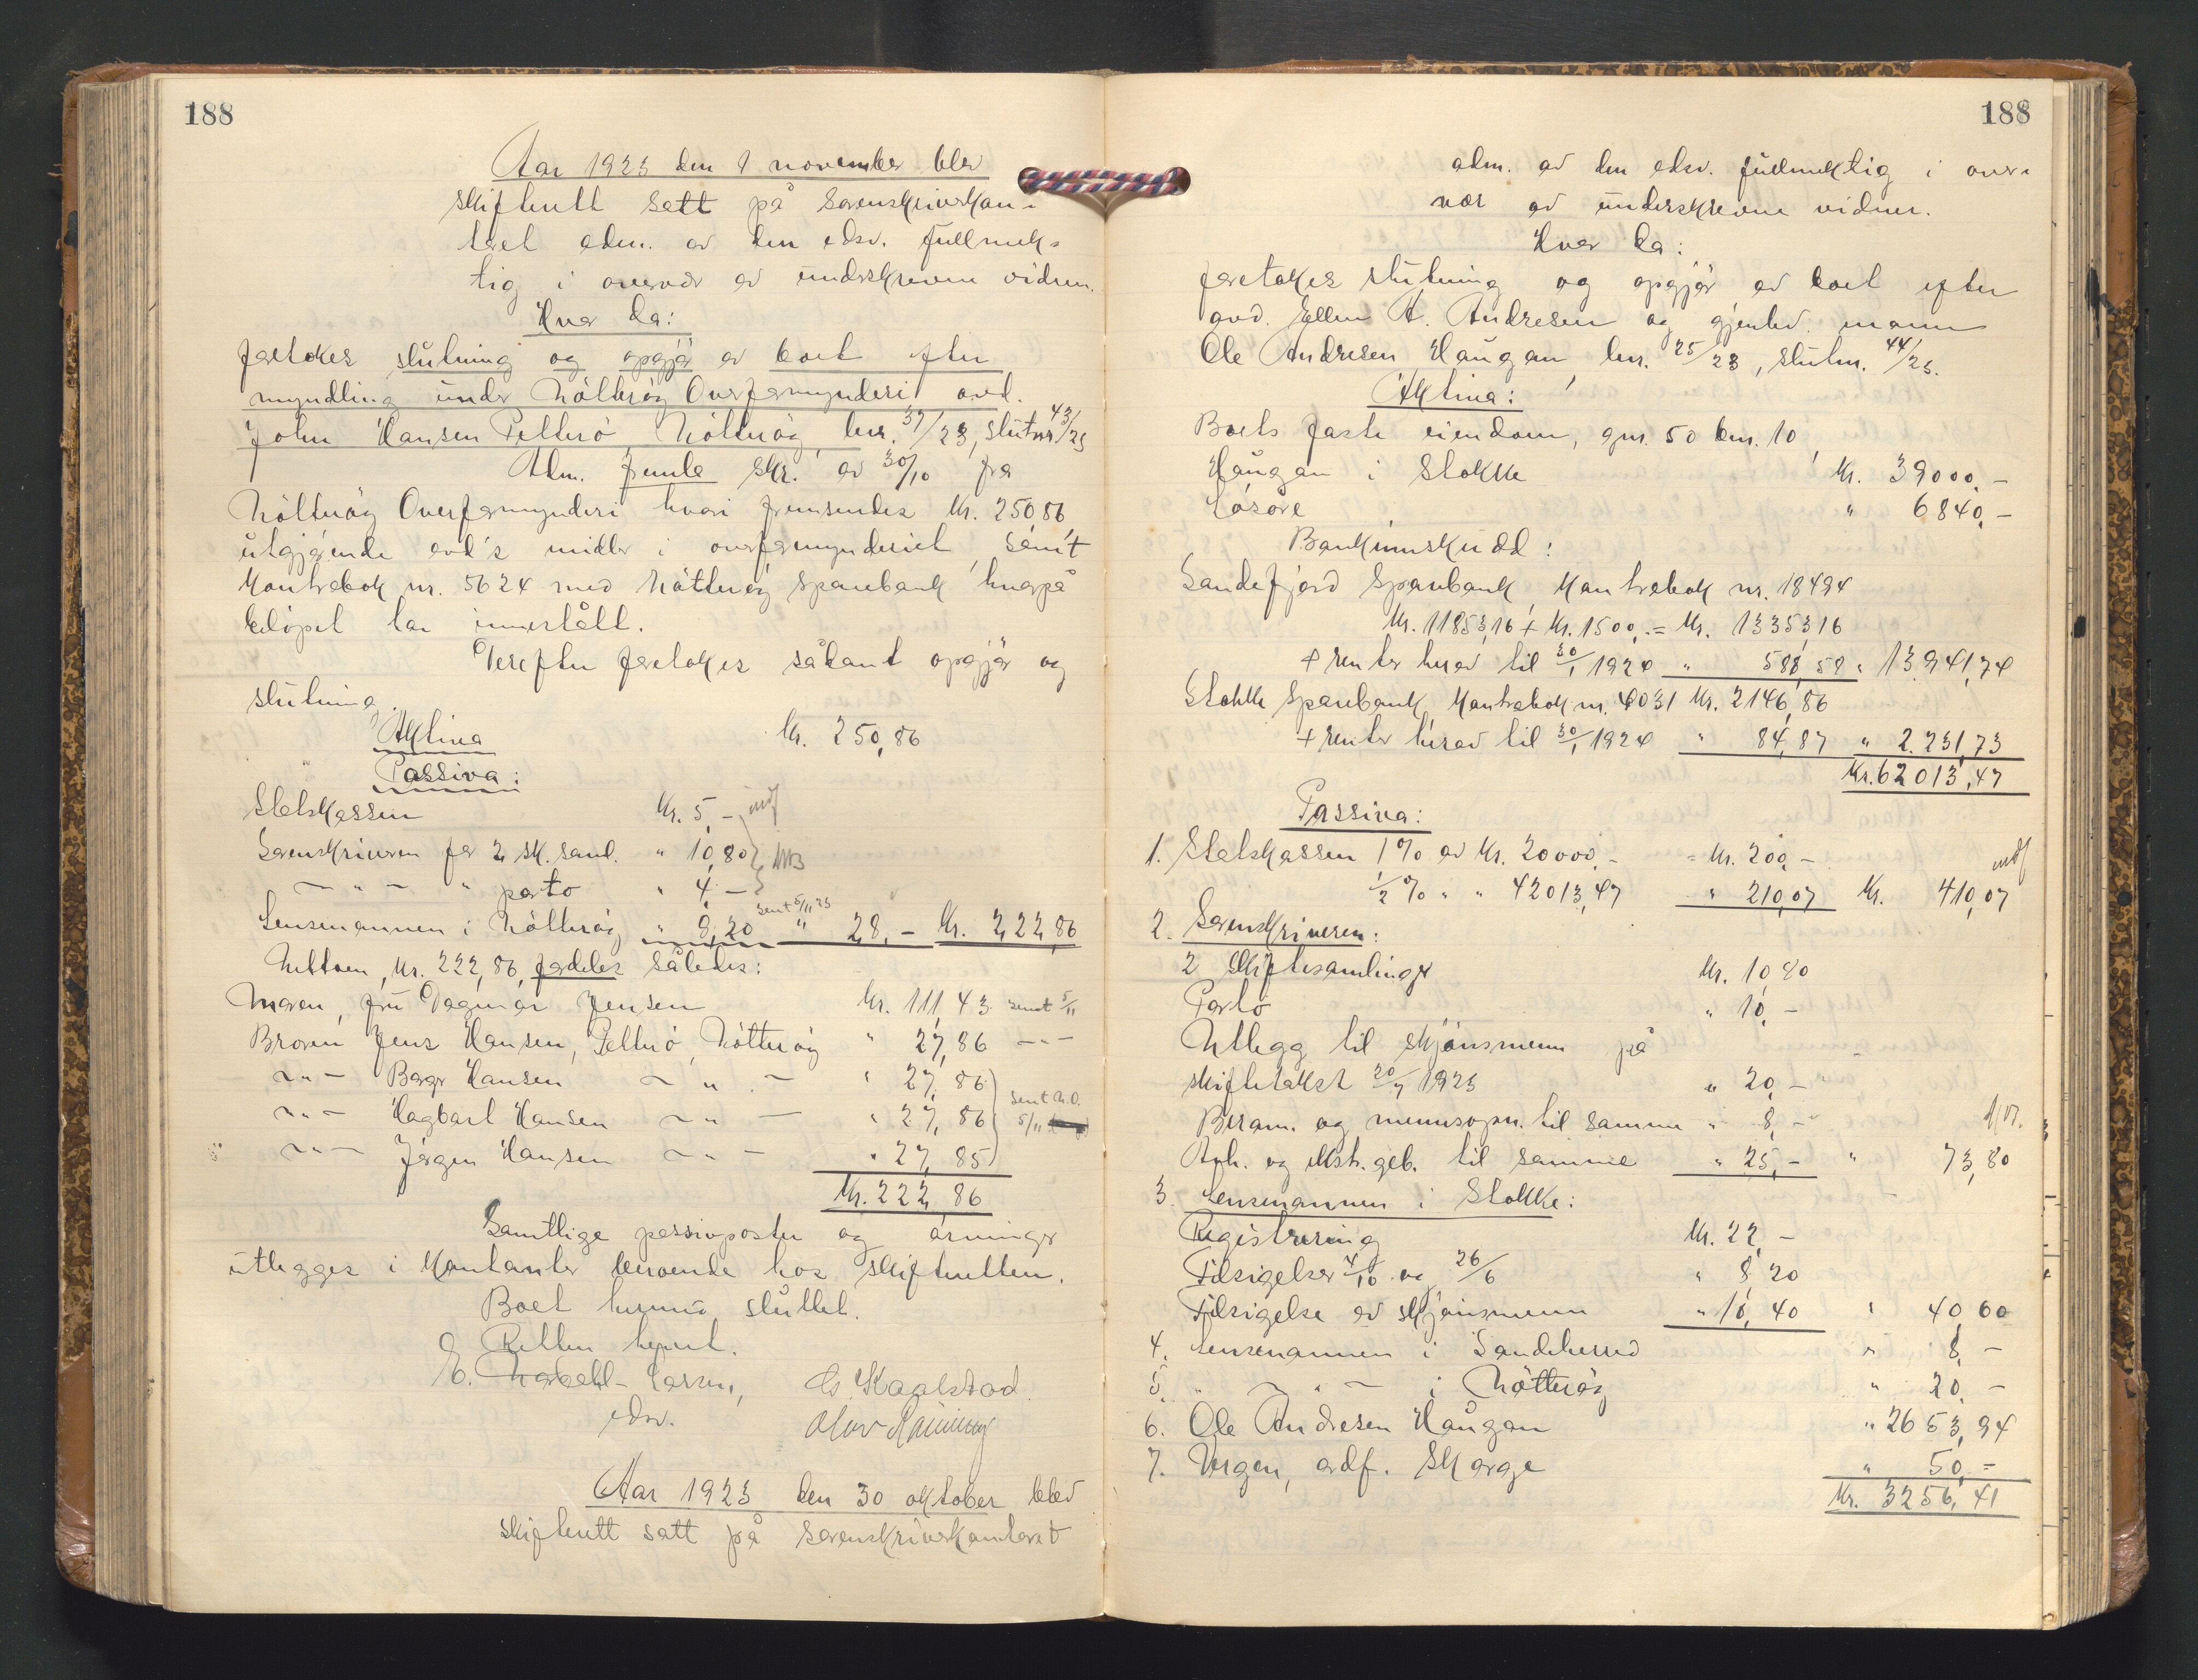 188
Aar 1923 den 1 november blev
skifterett satt på Sorenskriverkon-
toret adm. av den edsv. fullmek-
tig i overvær av underskrevne vidner.
Hvor da:
foretokes slutning og opgjør av boet efter
myndling under Nøtterøy Overformynderi avd.
John Hansen Pelterø Nøtterøy, bnr. 37/23, slutnr 43/23
Adm. fremla skr. av 30/10 fra
Nøtterøy Overformynderi hvori fremsendes kr. 250,86
utgjørende avd's midler i overformynderiet, samt
Kontrabok nr. 5624 med Nøtterøy Sparebank, hvorpå
beløpet har innestått.
Derefter foretokes sådant opgjør og
slutning.
Aktiva kr. 250,86
Passiva:
Statskassen kr. 5,- indf
Sorenskriveren for 2 sk. saml. " 10,80
- " - " porto " 4,-
Lensmannen i Nøtterøy " 8,20 sent 5/11 23 " 28,- kr. 222,86
Nettoen, kr. 222,86, fordeles således:
Moren, fru Dagmar Jensen kr. 111,43 sendt 5/11
Broren Jens Hansen, Pelterø, Nøtterøy " 27,86 - " -
- " - Borgr Hansen - " - " 27,86
- " - Hagbart Hansen - " - " 27,86 sent N.O. 5/11
- " - Jørgen Hansen - " - " 27,85
kr. 222,86
Samtlige passivposter og arvinger
utlegges i kontanter beroende hos skifteretten.
Boet hermed sluttet.
Retten hevet.
E. Larsen, Chr. Kaalstad
edsv. Olav
Aar 1923 den 30 oktober blev
skifterett satt på sorenskriverkontoret
188
adm. av den edsv. fullmektig i over-
vær av underskrevne vidner.
Hvor da:
foretokes slutning og opgjør av boet efter
avd. Ellen A. Andresen og gjenlev. mann
Ole Andresen Haugan, bnr. 25/23, slutnr. 44/23.
Aktiva:
Boets faste eiendom, gnr. 50 bnr. 10,
Haugan i Stokke kr. 39000,-
Løsøre " 6840,-
Bankinnskudd:
Sandefjord Sparebank Kontrabok nr. 18494
kr. 11853,16 + kr. 1500,- = kr. 13353,16
+ renter herav til 30/1 1924 " 588,58 " 13941,74
Stokke Sparebank, Kontrabok nr. 4031 kr. 2146,86
+ renter herav til 30/1 1924 " 84,87 " 2.231,73
kr. 62013,47
Passiva:
1. Statskassen 1% av kr. 20000,- = kr. 200,- indf
1/2 % " " 42013,47 " 210,07 kr. 410,07
2. Sorenskriveren:
2 skiftesamlinger kr. 10,80
Porto " 10,-
Utlegg til skjønsmenn på
skiftetakst 20/7 1923 " 20,-
Beram. og mennsopn. til samme " 8,-
Avh. og ekstr. geb. til samme " 25,- " 73,80
3. Lensmannen i Stokke:
Registrering kr. 22,-
Tilsigelser 4/10 og 26/6 " 8,20
Tilsigelse av skjønsmenn " 10,40 " 40,60
4. Lensmannen i Sandeherred " 8,-
5. " - " - i Nøtterøy " 20,-
6. Ole Andresen Haugan " 2653,94
7. Vergen, ordf. Skorge " 50,-
kr. 3256,41